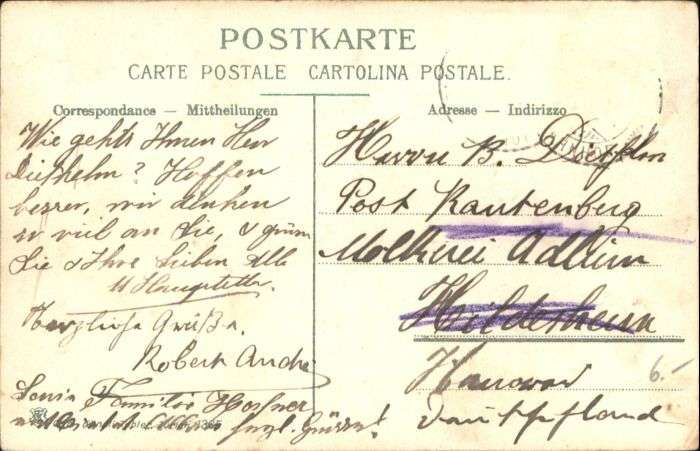 POSTKARTE
CARTE POSTALE CARTOLINA POSTALE.
Correspondance — Mittheilungen
Wie gehts Ihnen Herr
Diethelm? Hoffen
besser, wir denken
so viel an Sie, & grüssen
Sie & Ihre Lieben Alle
Haupstetter.
Herzliche Grüße.
Robert André
Familie Hafner
hzgl. Grüsse!
Adresse — Indirizzo
Herrn B. Diethelm
Post Rautenberg
Molkerei Adlum
Hildesheim
Hanover
6.-